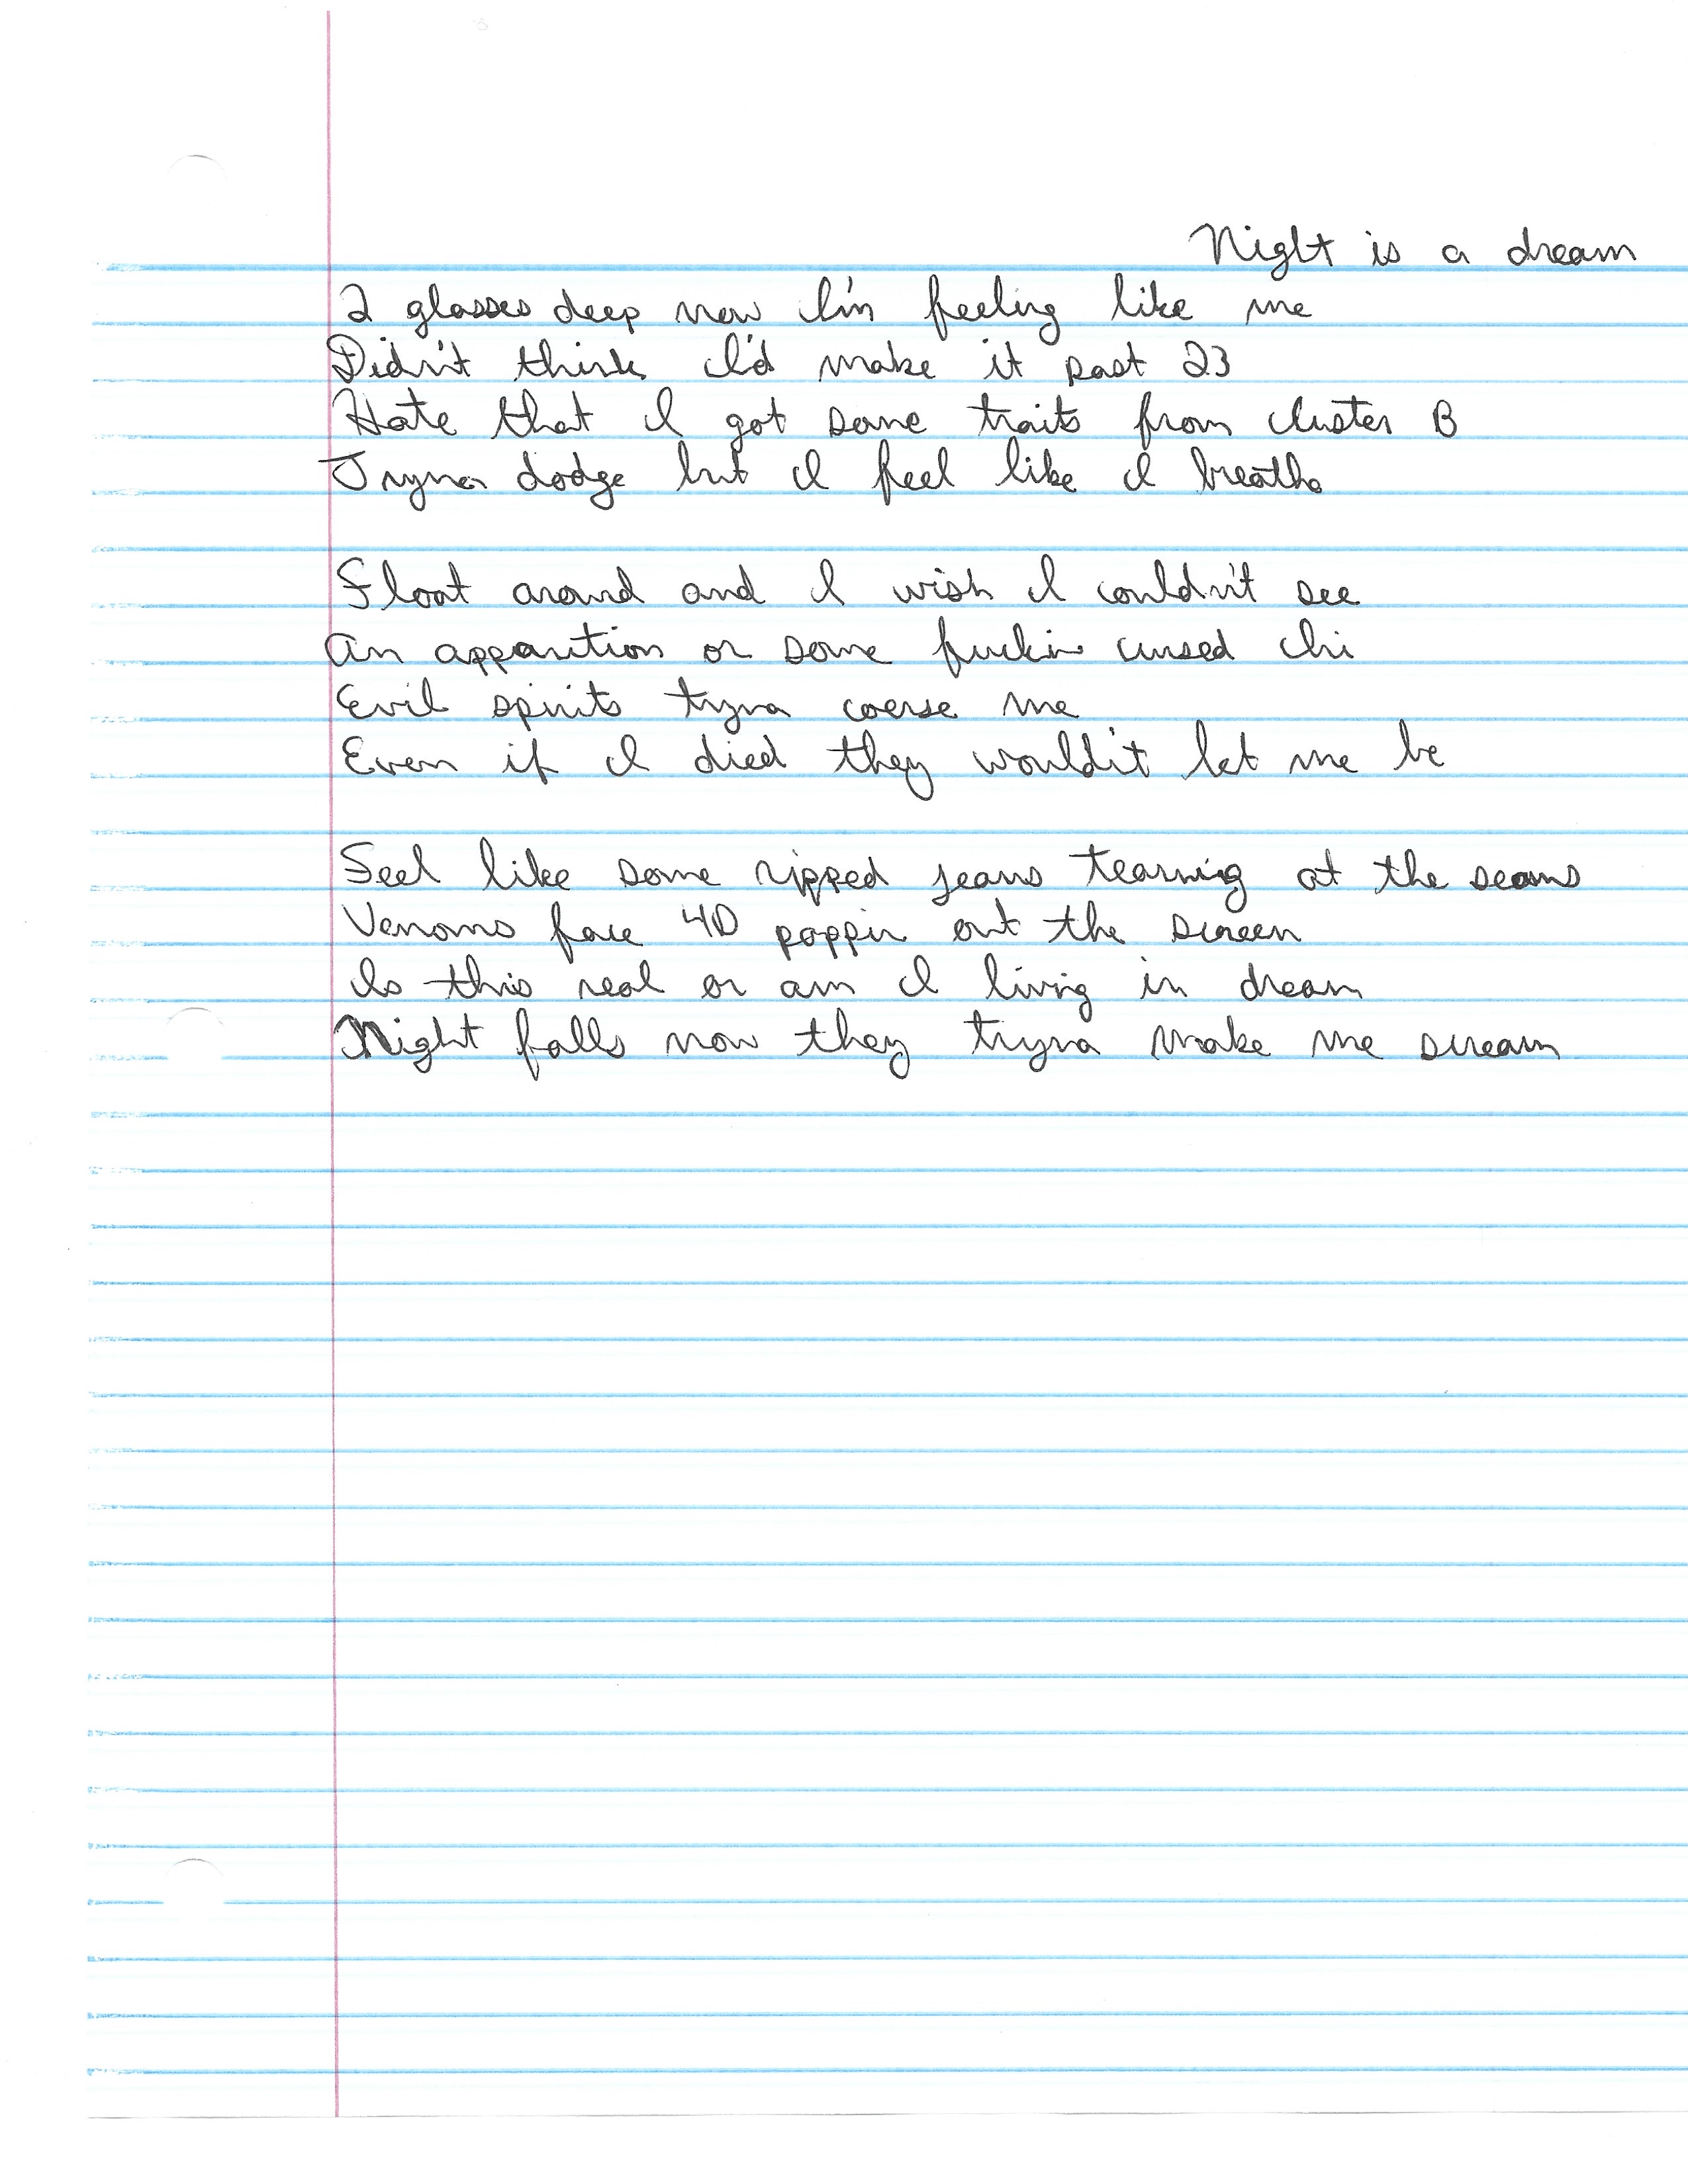 Night is a dream
2 glasses deep now I'm feeling like me
Didn't think I'd make it past 23
Hate that I got some traits from cluster B
Tryna dodge but I feel like I breathe

Float around and I wish I couldn't see
An apparition or some fuckin cursed chi
Evil spirits tryna coerse me
Even if I died they would't let me be

Feel like some ripped jeans tearning at the seams
Venoms face 4D poppin out the screen
Is this real or am I living in dream
Night falls now they tryna make me scream